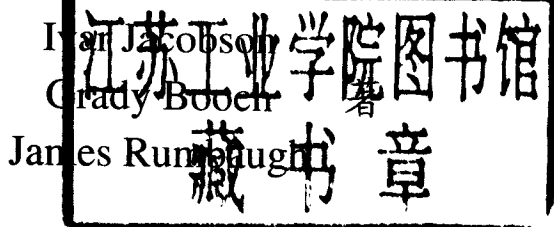 Ivar Jacobson
Grady Booch 著
James Rumbaugh
江苏工业学院图书馆
藏书章